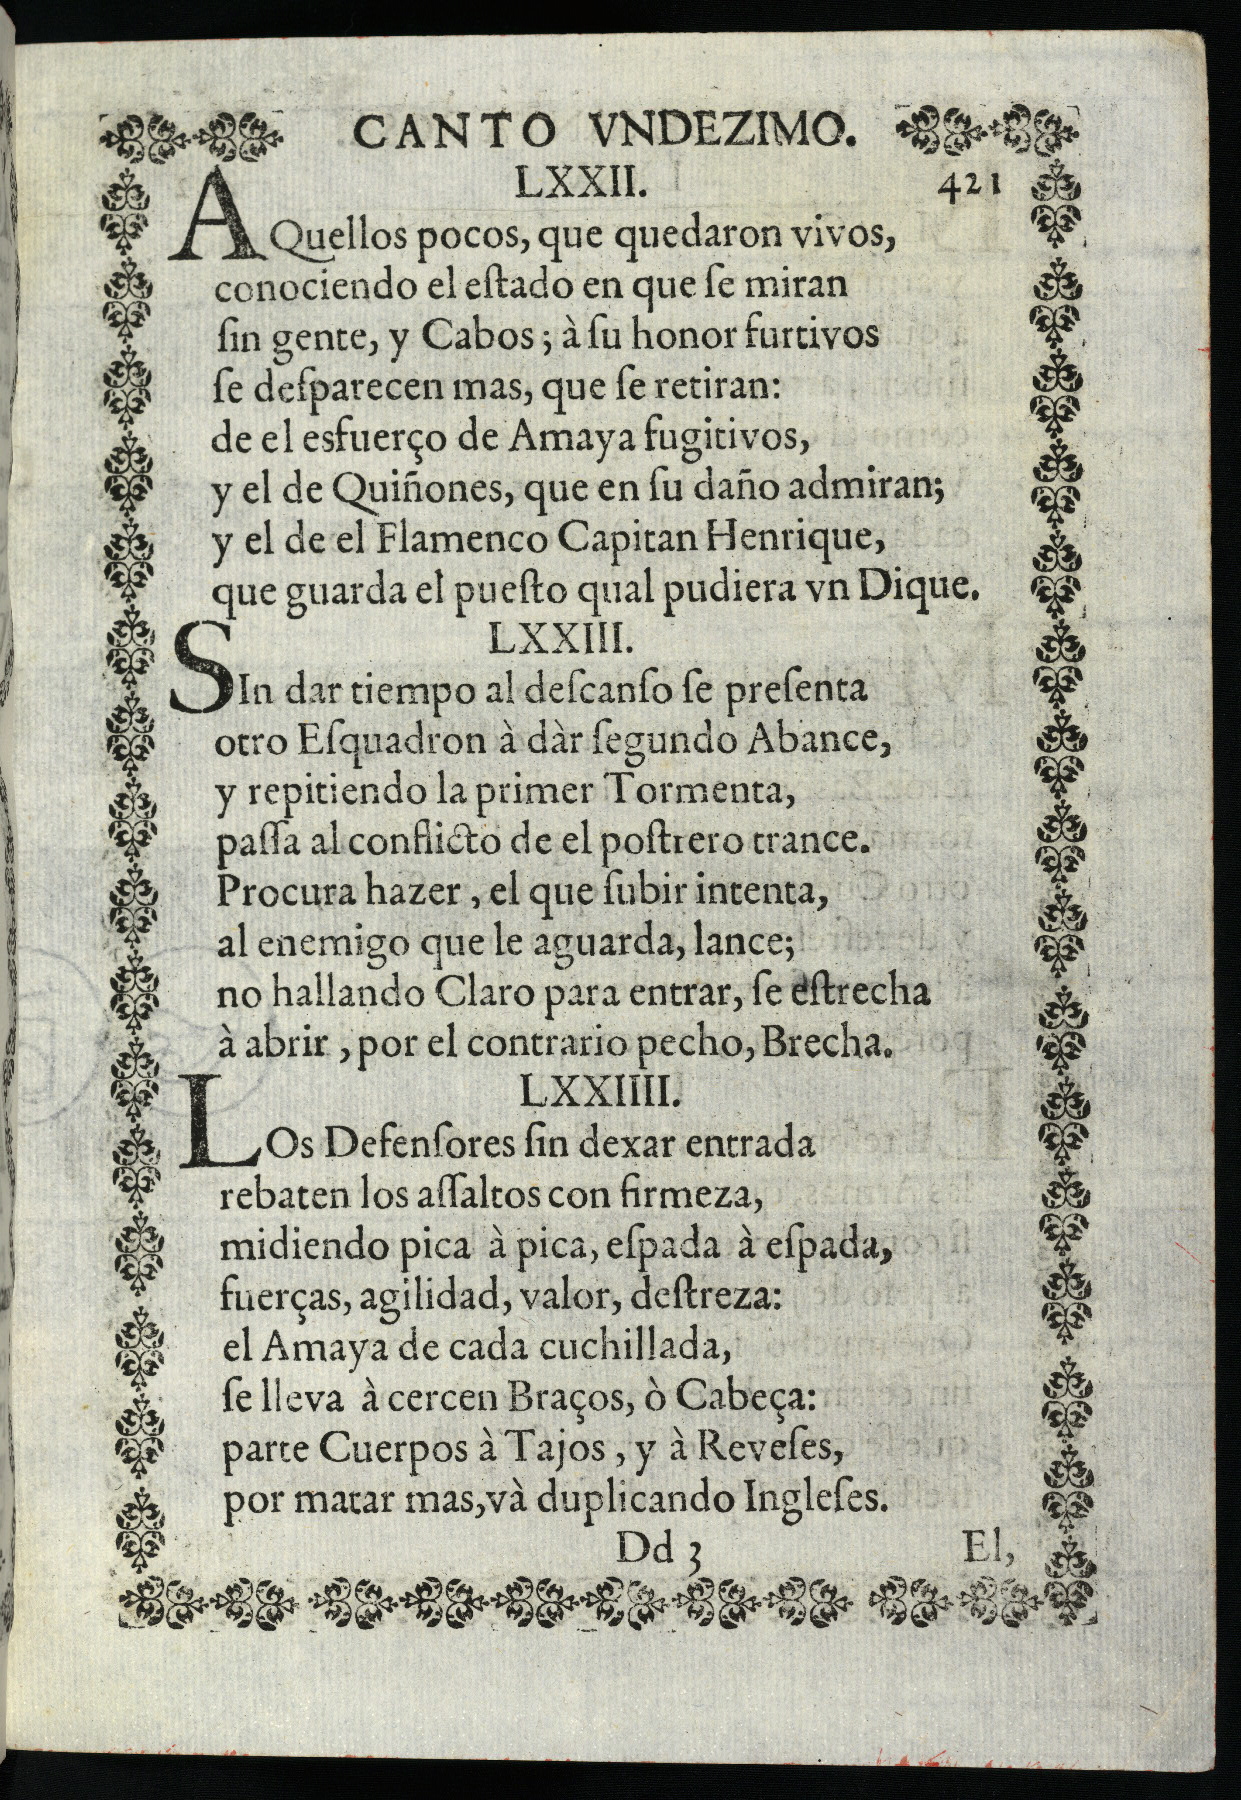 CANTO VNDEZIMO.
LXXII. 421
AQuellos pocos, que quedaron vivos,
conociendo el eſtado en que ſe miran
ſin gente, y Cabos; à ſu honor furtivos
ſe deſparecen mas, que ſe retiran:
de el esfuerço de Amaya fugitivos,
y el de Quiñones, que en ſu daño admiran;
y el de el Flamenco Capitan Henrique,
que guarda el pueſto qual pudiera vn Dique.
LXXIII.
SIn dar tiempo al deſcanſo ſe preſenta
otro Eſquadron à dàr ſegundo Abance,
y repitiendo la primer Tormenta,
paſſa al conflicto de el poſtrero trance.
Procura hazer, el que ſubir intenta,
al enemigo que le aguarda, lance;
no hallando Claro para entrar, ſe eſtrecha
à abrir, por el contrario pecho, Brecha.
LXXIIII.
LOs Defenſores ſin dexar entrada
rebaten los aſſaltos con firmeza,
midiendo pica à pica, eſpada à eſpada,
fuerças, agilidad, valor, deſtreza:
el Amaya de cada cuchillada,
ſe lleva à cercen Braços, ò Cabeça:
parte Cuerpos à Tajos, y à Reveſes,
por matar mas, và duplicando Ingleſes.
Dd 3 El,